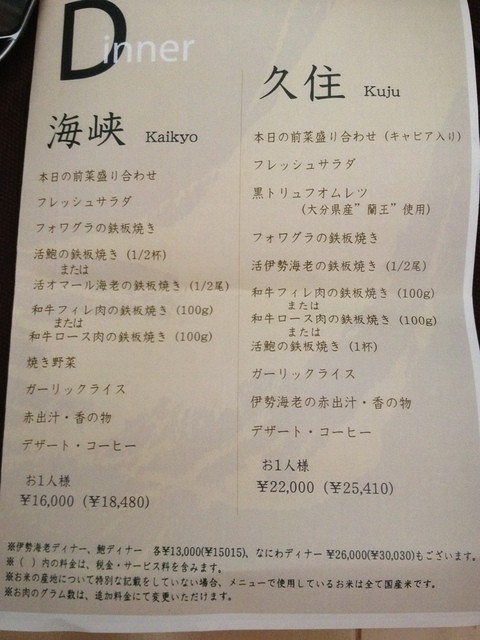 Dinner
海峡 Kaikyo
本日の前菜盛り合わせ
フレッシュサラダ
フォワグラの鉄板焼き
活鮑の鉄板焼き (1/2杯)
または
活オマール海老の鉄板焼き (1/2尾)
和牛フィレ肉の鉄板焼き (100g)
または
和牛ロース肉の鉄板焼き (100g)
焼き野菜
ガーリックライス
赤出汁・香の物
デザート・コーヒー
お1人様
¥16,000 (¥18,480)
久住 Kuju
本日の前菜盛り合わせ (キャビア入り)
フレッシュサラダ
黒トリュフオムレツ
(大分県産”蘭王”使用)
フォワグラの鉄板焼き
活伊勢海老の鉄板焼き (1/2尾)
和牛フィレ肉の鉄板焼き (100g)
または
和牛ロース肉の鉄板焼き (100g)
または
活鮑の鉄板焼き (1杯)
ガーリックライス
伊勢海老の赤出汁・香の物
デザート・コーヒー
お1人様
¥22,000 (¥25,410)
※伊勢海老ディナー、鮑ディナー 各¥13,000(¥15015)、なにわディナー ¥26,000(¥30,030)もございます。
※ ( ) 内の料金は、税金・サービス料を含みます。
※お米の産地について特別な記載をしていない場合、メニューで使用しているお米は全て国産米です。
※お肉のグラム数は、追加料金にて変更いただけます。